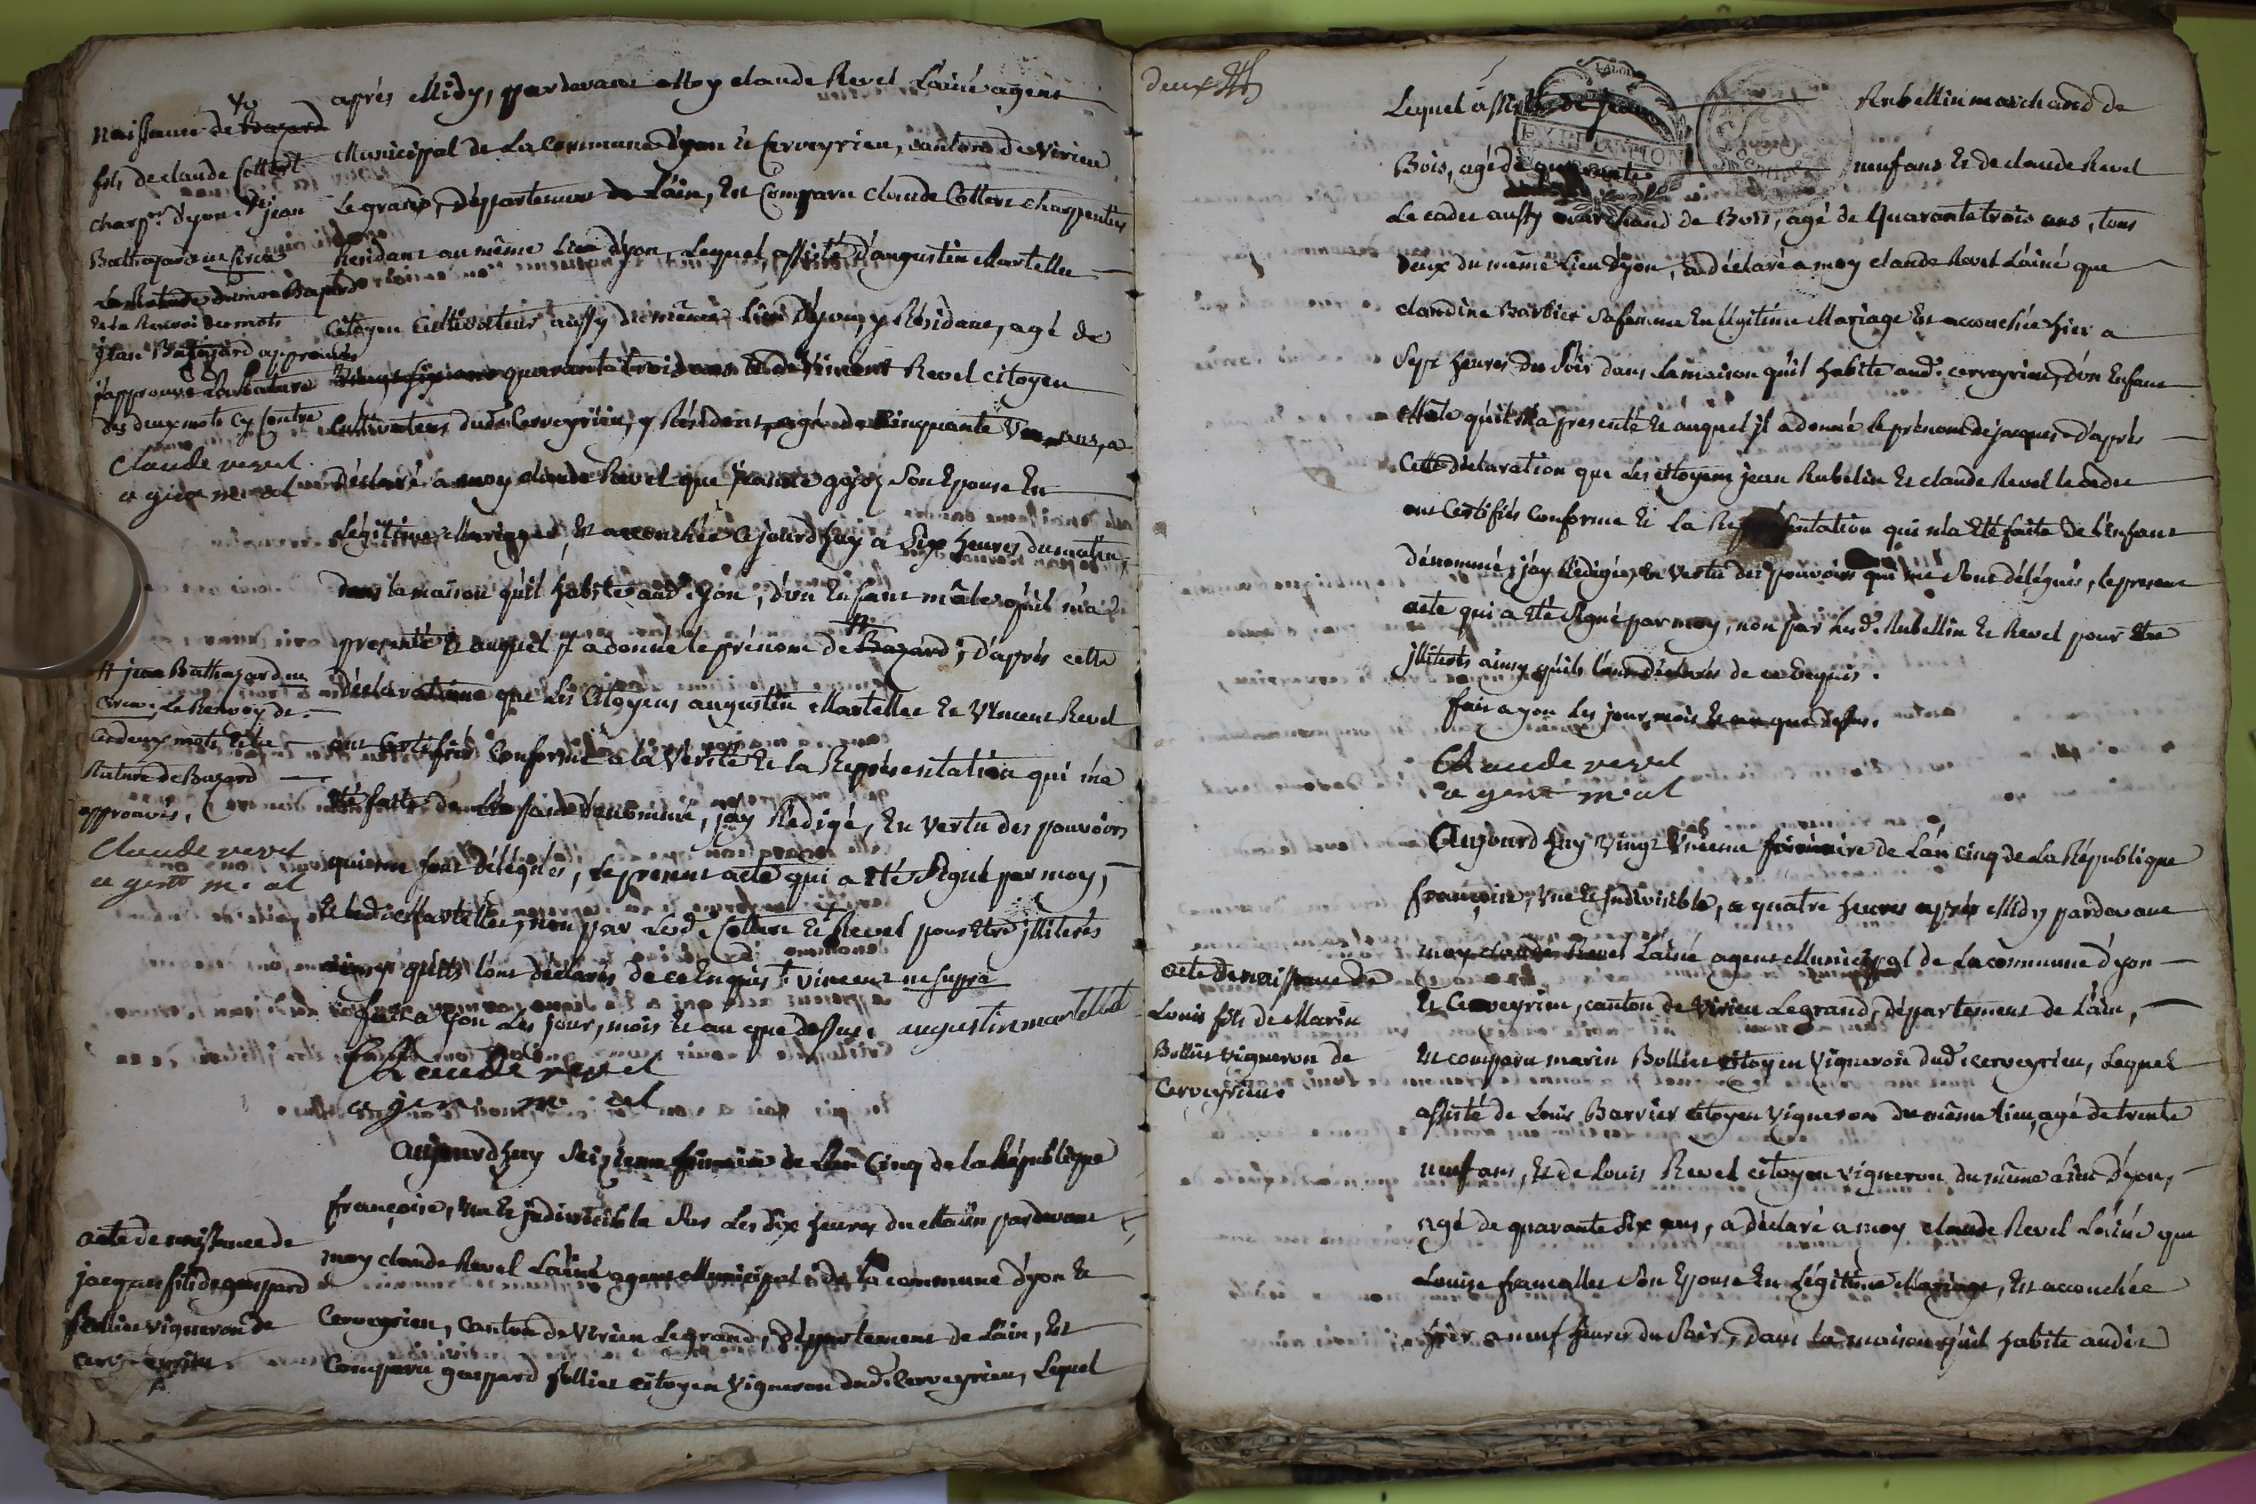 après Midy, pardevant Moy claude Revel L'ainé agent
Naissance de Bazard
fils de claude Collert
charp.er d'yon
Municippal de La Commune d'yon et Cerveyrieu, canton de Virieu
Le grand, départtement de L'ain, Est Comparu claude Collert charpentier
Residant au même Lieu d'yon, Lequel, assisté d'augustin Martellet
Citoyen Cultivateur aussy du même Lieu d'yon, y Résidant, agé de
quarante trois ans et de Vincent Revel citoyen
Cultivateur dud. Cerveyrieu, y Résident, agé de Cinquante Un ans, a
Jean
Balthazard
de la Renvoi des mots
jean Baltazard approuvés
j'approuve la Rature
des deux mots Cy Contre
Claude revel
agent m.al
déclaré a moy claude Revel que son Epouse En
Légitime Mariage, Est accouchée ce jourd'huy a Six heures du matin,
dans la maison qu'il habite aud. yon, d'un Enfant mâle qu'il m'a
presenté Et auquel il a donné le prénom de Bazard; D'après cette
déclaration que les Citoyens augustin Martellet Et Vincent Revel
ont Certifiés Conforme a la Vérité Et la Représentation qui m'a
été faite de L'enfant dénommé, j'ay Rédigé, En Vertu des pouvoirs
qui me sont délégués, le present acte qui a été Signé par moy,
Et led. Martellet, non par Lesd. Collert Et Revel pour Etre jlliterés
ainsy qu'ils l'ont déclarés de ce Enquis Vincent ne supra
# jean Balthazard
Le Renvoy de
ces deux mots Et la
Rature de Bazard
approuvés,
Claude revel
agent m.al
fait a yon Les jour, mois Et an que dessus. augustin martellet
Claude revel
agen m al
aujourd'huy Seizieme frimaire de L'an Cinq de la République
françoise, Une Et jndivisible Sur Les dix heures du Matin pardevant
moy claude Revel L'ainé agent Municipal de La commune d'yon Et
Cerveyrieu, Canton de Virieu Le grand, Département de L'ain, Est
Comparu gaspard follier citoyen Vigneron dud. Cerveyrieu, Lequel
acte de naissance de
jacques fils de gaspard
follier vigneron de
Cerveyrieu
deux
Lequel assisté de jean Rubellin marchand de
Bois, agé de quarante neuf ans Et de claude Revel
Le cadet aussy marchand de Bois, agé de Quarante trois ans, tous
deux du même Lieu d'yon, a déclaré a moy claude Revel L'ainé que
claudine Barbier Sa femme En légitime Mariage Est accouchée hier a
Sept heures du Soir dans la maison qu'il habite aud. cerveyrieu, d'un Enfant
Mâle qu'il m'a presenté Et auquel jl a donné le prénom de jacques. d'après
Cette déclaration que Les citoyens jean Rubelin Et claude Revel le cadet
ont Certifiés Conforme Et la Représentation qui m'a été faite de L'enfant
dénommé, j'ay Rédigé, En Vertu des pouvoirs qui me Sont délégués, le present
acte qui a été Signé par moy, non par Lesd. Rubellin Et Revel pour être
jlliterés ainsy qu'ils l'ont déclarés de ce Enquis.
fait a yon Les jour, mois Et an que dessus.
Claude revel
agent m.al
Aujourd'huy Vingt Unieme frimaire de L'an cinq de La République
françoise, Une Et Indivisible, a quatre heures après Midy pardevant
moy claude Revel L'ainé agent Municippal de La commune d'yon
Et Cerveyrieu, canton de Virieu Le grand, département de L'ain,
Est comparu marin Bollier citoyen Vigneron dud. cerveyrieu, Lequel
assisté de Louis Barrier citoyen Vigneron du même lieu, agé de trente
neuf ans, Et de Louis Revel citoyen vigneron du même Lieu d'yon,
agé de quarante Six ans, a déclaré a moy claude Revel L'ainé que
Louise Son Epouse En Légitime Mariage, Est accouchée
hier a neuf heures du Soir, dans la maison qu'il habite audit
acte de naissance de
Louis fils de Marin
Bollier vigneron de
Cerveyrieu.